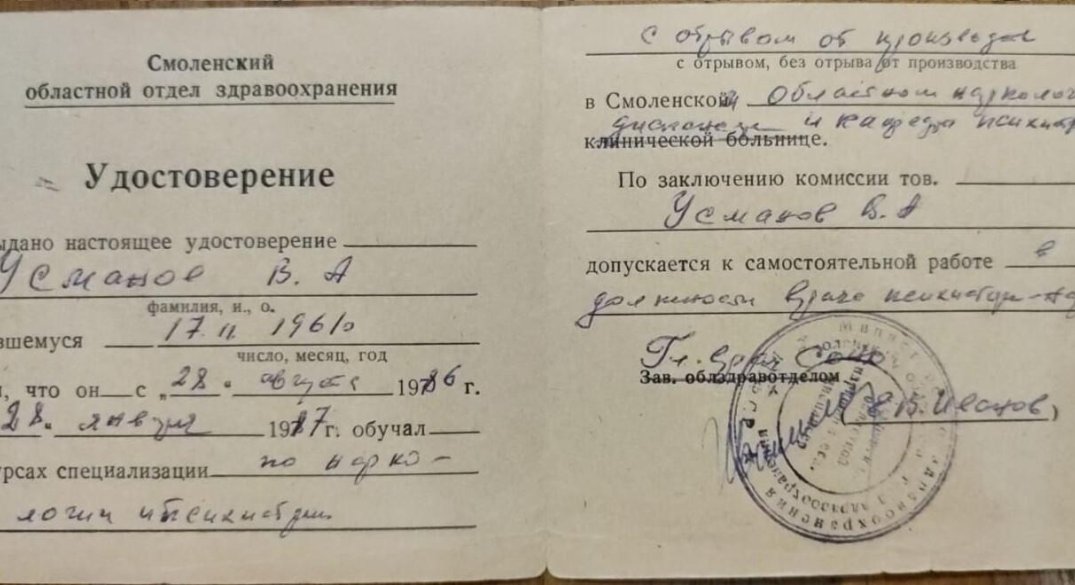 Смоленский
областной отдел здравоохранения
Удостоверение
ыдано настоящее удостоверение
Усманов В. А
фамилия, и., о.
вшемуся 17. II 1961г
число, месяц, год
, что он с „28" августа 1986 г.
28" января 1987г. обучал
урсах специализации по нарко-
логии и психиатрии
с отрывом от производс
с отрывом, без отрыва от производства
в Смоленской Областном нарколог
диспансере и кафедра психиатр
клинической больнице.
По заключению комиссии тов.
Усманов В. А
допускается к самостоятельной работе в
должности врача психиатра-на
Гл. врач
Зав. облздравотделом
(В. Иванов)